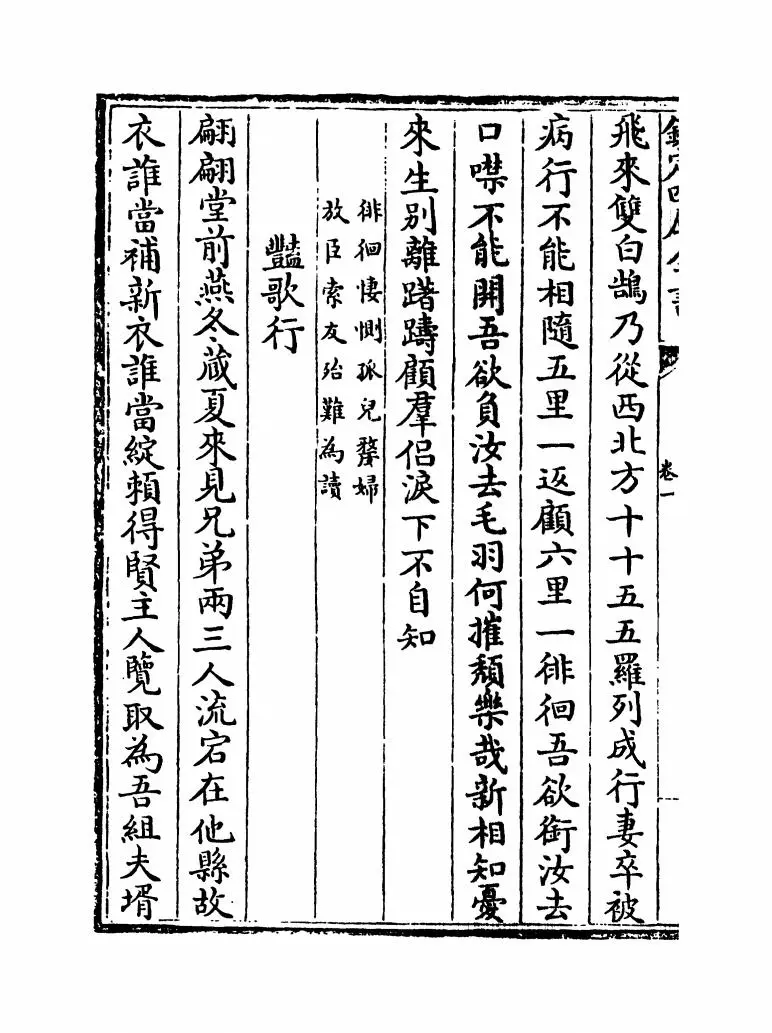 欽定四庫全書
卷一
飛來雙白鵠乃從西北方十十五五羅列成行妻卒被
病行不能相隨五里一返顧六里一徘徊吾欲銜汝去
口噤不能開吾欲負汝去毛羽何摧頽樂哉新相知憂
來生別離躇躊顧羣侶淚下不自知
徘徊悽惻孤兒嫠婦
放臣索友殆難為讀
豔歌行
翩翩堂前燕冬藏夏來見兄弟兩三人流宕在他縣故
衣誰當補新衣誰當綻賴得賢主人覽取為吾組夫壻